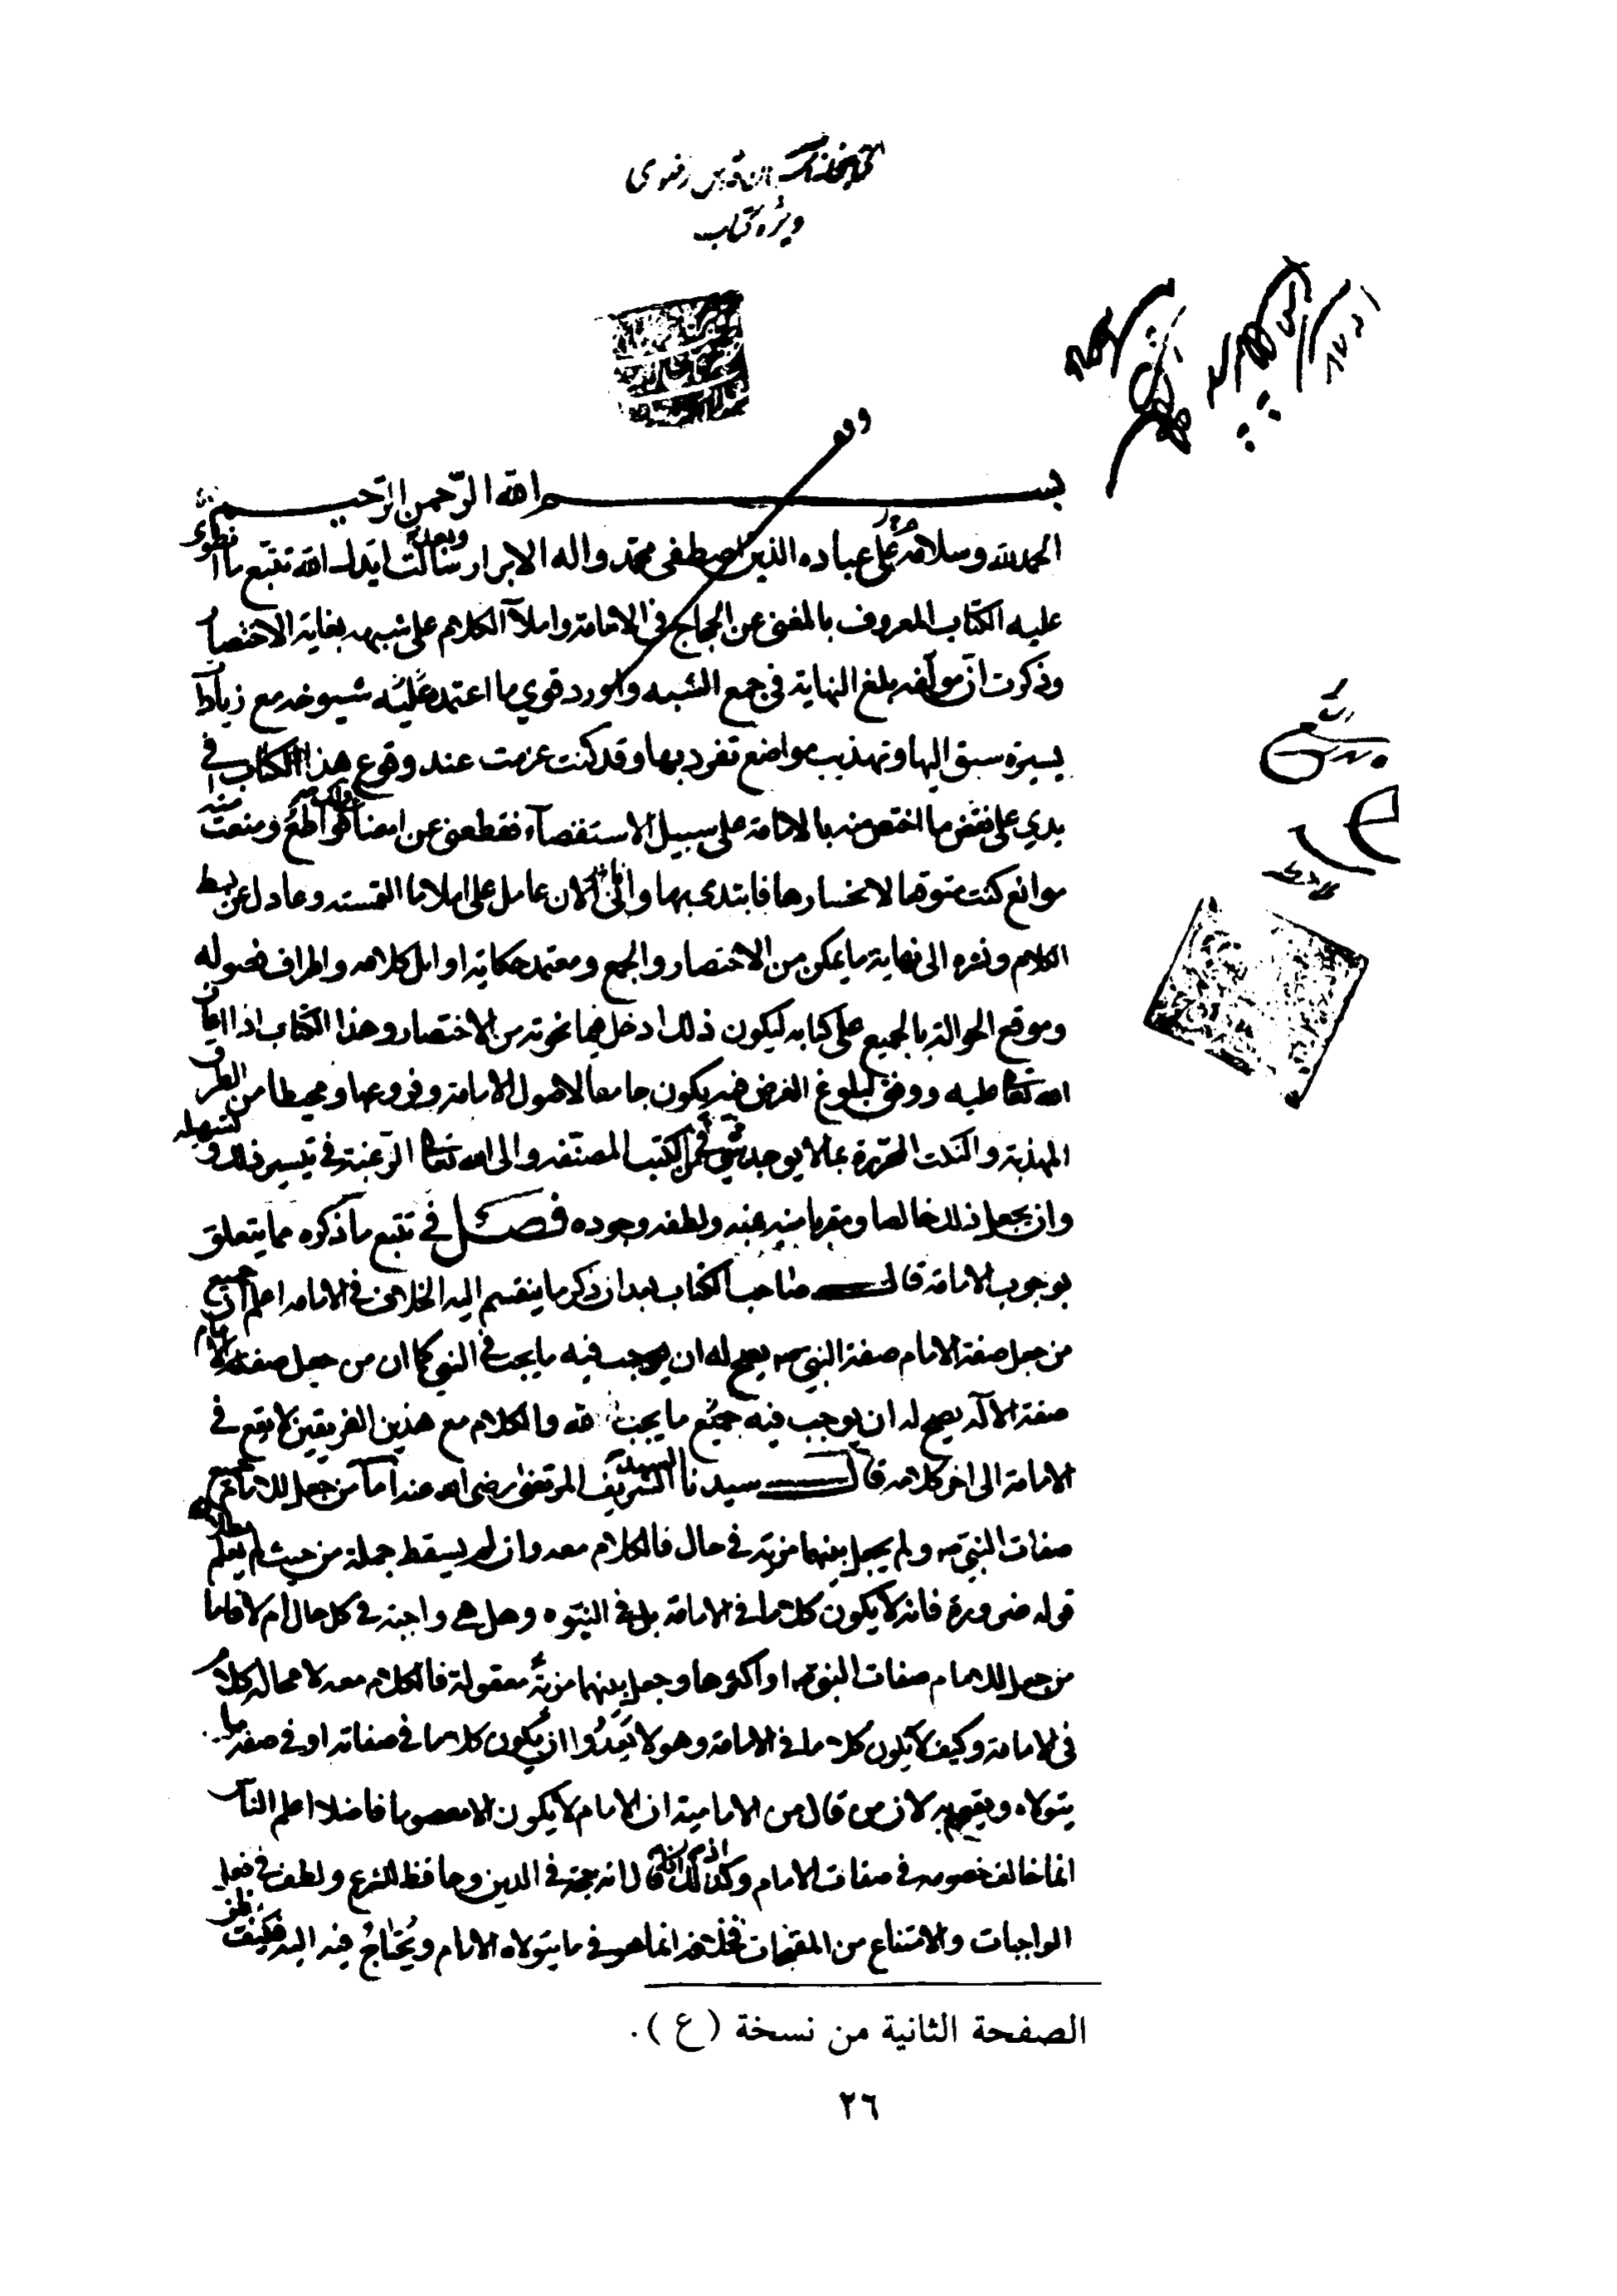 كتابخانه آستان قدس رضوى
ويژه كتاب
وقف
بسم الله الرّحمن الرّحيم
الحمد لله وسلام على عباده الذين اصطفى محمّد واله الابرار وبعد سالت ايّدك الله تتبّع ما انطوى
عليه الكتاب المعروف بالمغنى عن الحجاج فى الامامة واملآ الكلام على شبهه بغاية الاختصار
وذكرت انّ مولّفه بلغ النهاية فى جمع الشبه واورد قوي ما اعتمد عليه شيوخه مع زيادات
يسيرة سبق اليها وتهذيب مواضع تفرد بها وقد كنت عزمت عند وقوع هذا الكتاب فى
يدي على نقض ما اختص منه بالامامة على سبيل الاستقصآء فقطعنى عن امضآ ذلك قواطع ومنعت منه
موانع كنت متوقعا لانحسارها فابتدى بها وانى الان عامل على املا ما التمسته وعادل عن بسط
الكلام ونشره الى نهاية ما يمكن من الاختصار والجمع ومعتمد حكاية اوايل كلامه واطراف فصوله
وموقع الحوالة بالجميع على كتابه ليكون ذلك ادخل فيما نحوته من الاختصار وهذا الكتاب اذا اعان
الله تعالى عليه ووفق لبلوغ الغرض فيه يكون جامعا لاصول الامامة وفروعها ومحيطا من الطرق
المهذبة والنكت المحرّرة بما لا يوجد فى شئ من الكتب المصنّفه والى الله تعالى الرّغبة فى تيسير ذلك وتسهيله
وان يجعل ذلك خالصا ومقربا منه بمنه ولطفه وجوده فصل فى تتبع ما ذكره مما يتعلق
بوجوب الامامة قال صاحب الكتاب بعد ان ذكر ما ينقسم اليه الخلاف فى الامامه اعلم ان جميع
من جعل صفة الامام صفة النبى ص يصح له ان يوجب فيه ما يجب فى النبى كما ان من جعل صفته الامام
صفة الاله يصح له ان يوجب فيه جميع ما يجب لله والكلام مع هذين الفريقين لا يقع فى
الامامة الى اخر كلامه قال سيدنا السيد الشريف المرتضى رضى الله عنه امّا من جعل للامام جميع
صفات النبى ص ولم يجعل بينهما مزية فى حال فالكلام معه وان لم يسقط جملة من حيث لم يعلم بطلان
قوله ضرورة فانه لا يكون كلاما فى الامامة بل فى النبوه وهل هى واجبة فى كل حال ام لا فاما
من جعل للامام صفات النبى ص او اكثرها وجعل بينهما مزيّة معقولة فالكلام معه لا محالة كلام
فى الامامة وكيف لا يكون كلاما فى الامامة وهو لا يعدوا ان يكون كلاما فى صفاته او فى صفة ما
يتولاه ويقوم به لان من قال من الامامية ان الامام لا يكون الا معصوما فاضلا اعلم الناس
انما خالف خصومه فى صفات الامام وكذلك اذا قال انه حجة فى الدين وحافظ للشرع ولطف فى فعل
الواجبات والامتناع من المقبحات فخلافه انما هو فى ما يتولاه الامام ويحتاج فيه اليه فكيف ظن
الصفحة الثانية من نسخة (ع).
٢٦